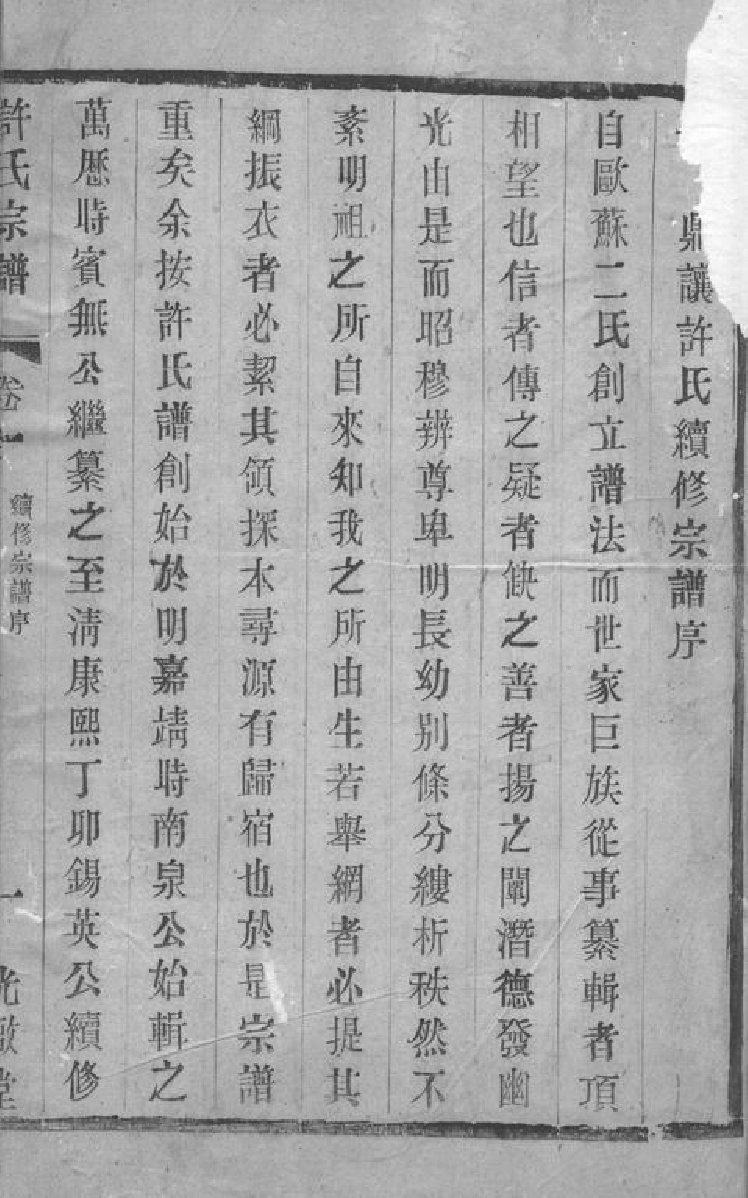 鼎讓許氏續修宗譜序
自歐蘇二氏創立譜法而世家巨族從事纂輯者項
相望也信者傳之疑者缺之善者揚之闡潛德發幽
光由是而昭穆辨尊卑明長幼別條分縷析秩然不
紊明祖之所自來知我之所由生若舉網者必提其
綱振衣者必絜其領探本尋源有歸宿也於是宗譜
重矣余按許氏譜創始於明嘉靖時南泉公始輯之
萬厯時賓無公繼纂之至清康熙丁卯錫英公續修
許氏宗譜
卷一
續修宗譜序
一
光啟堂